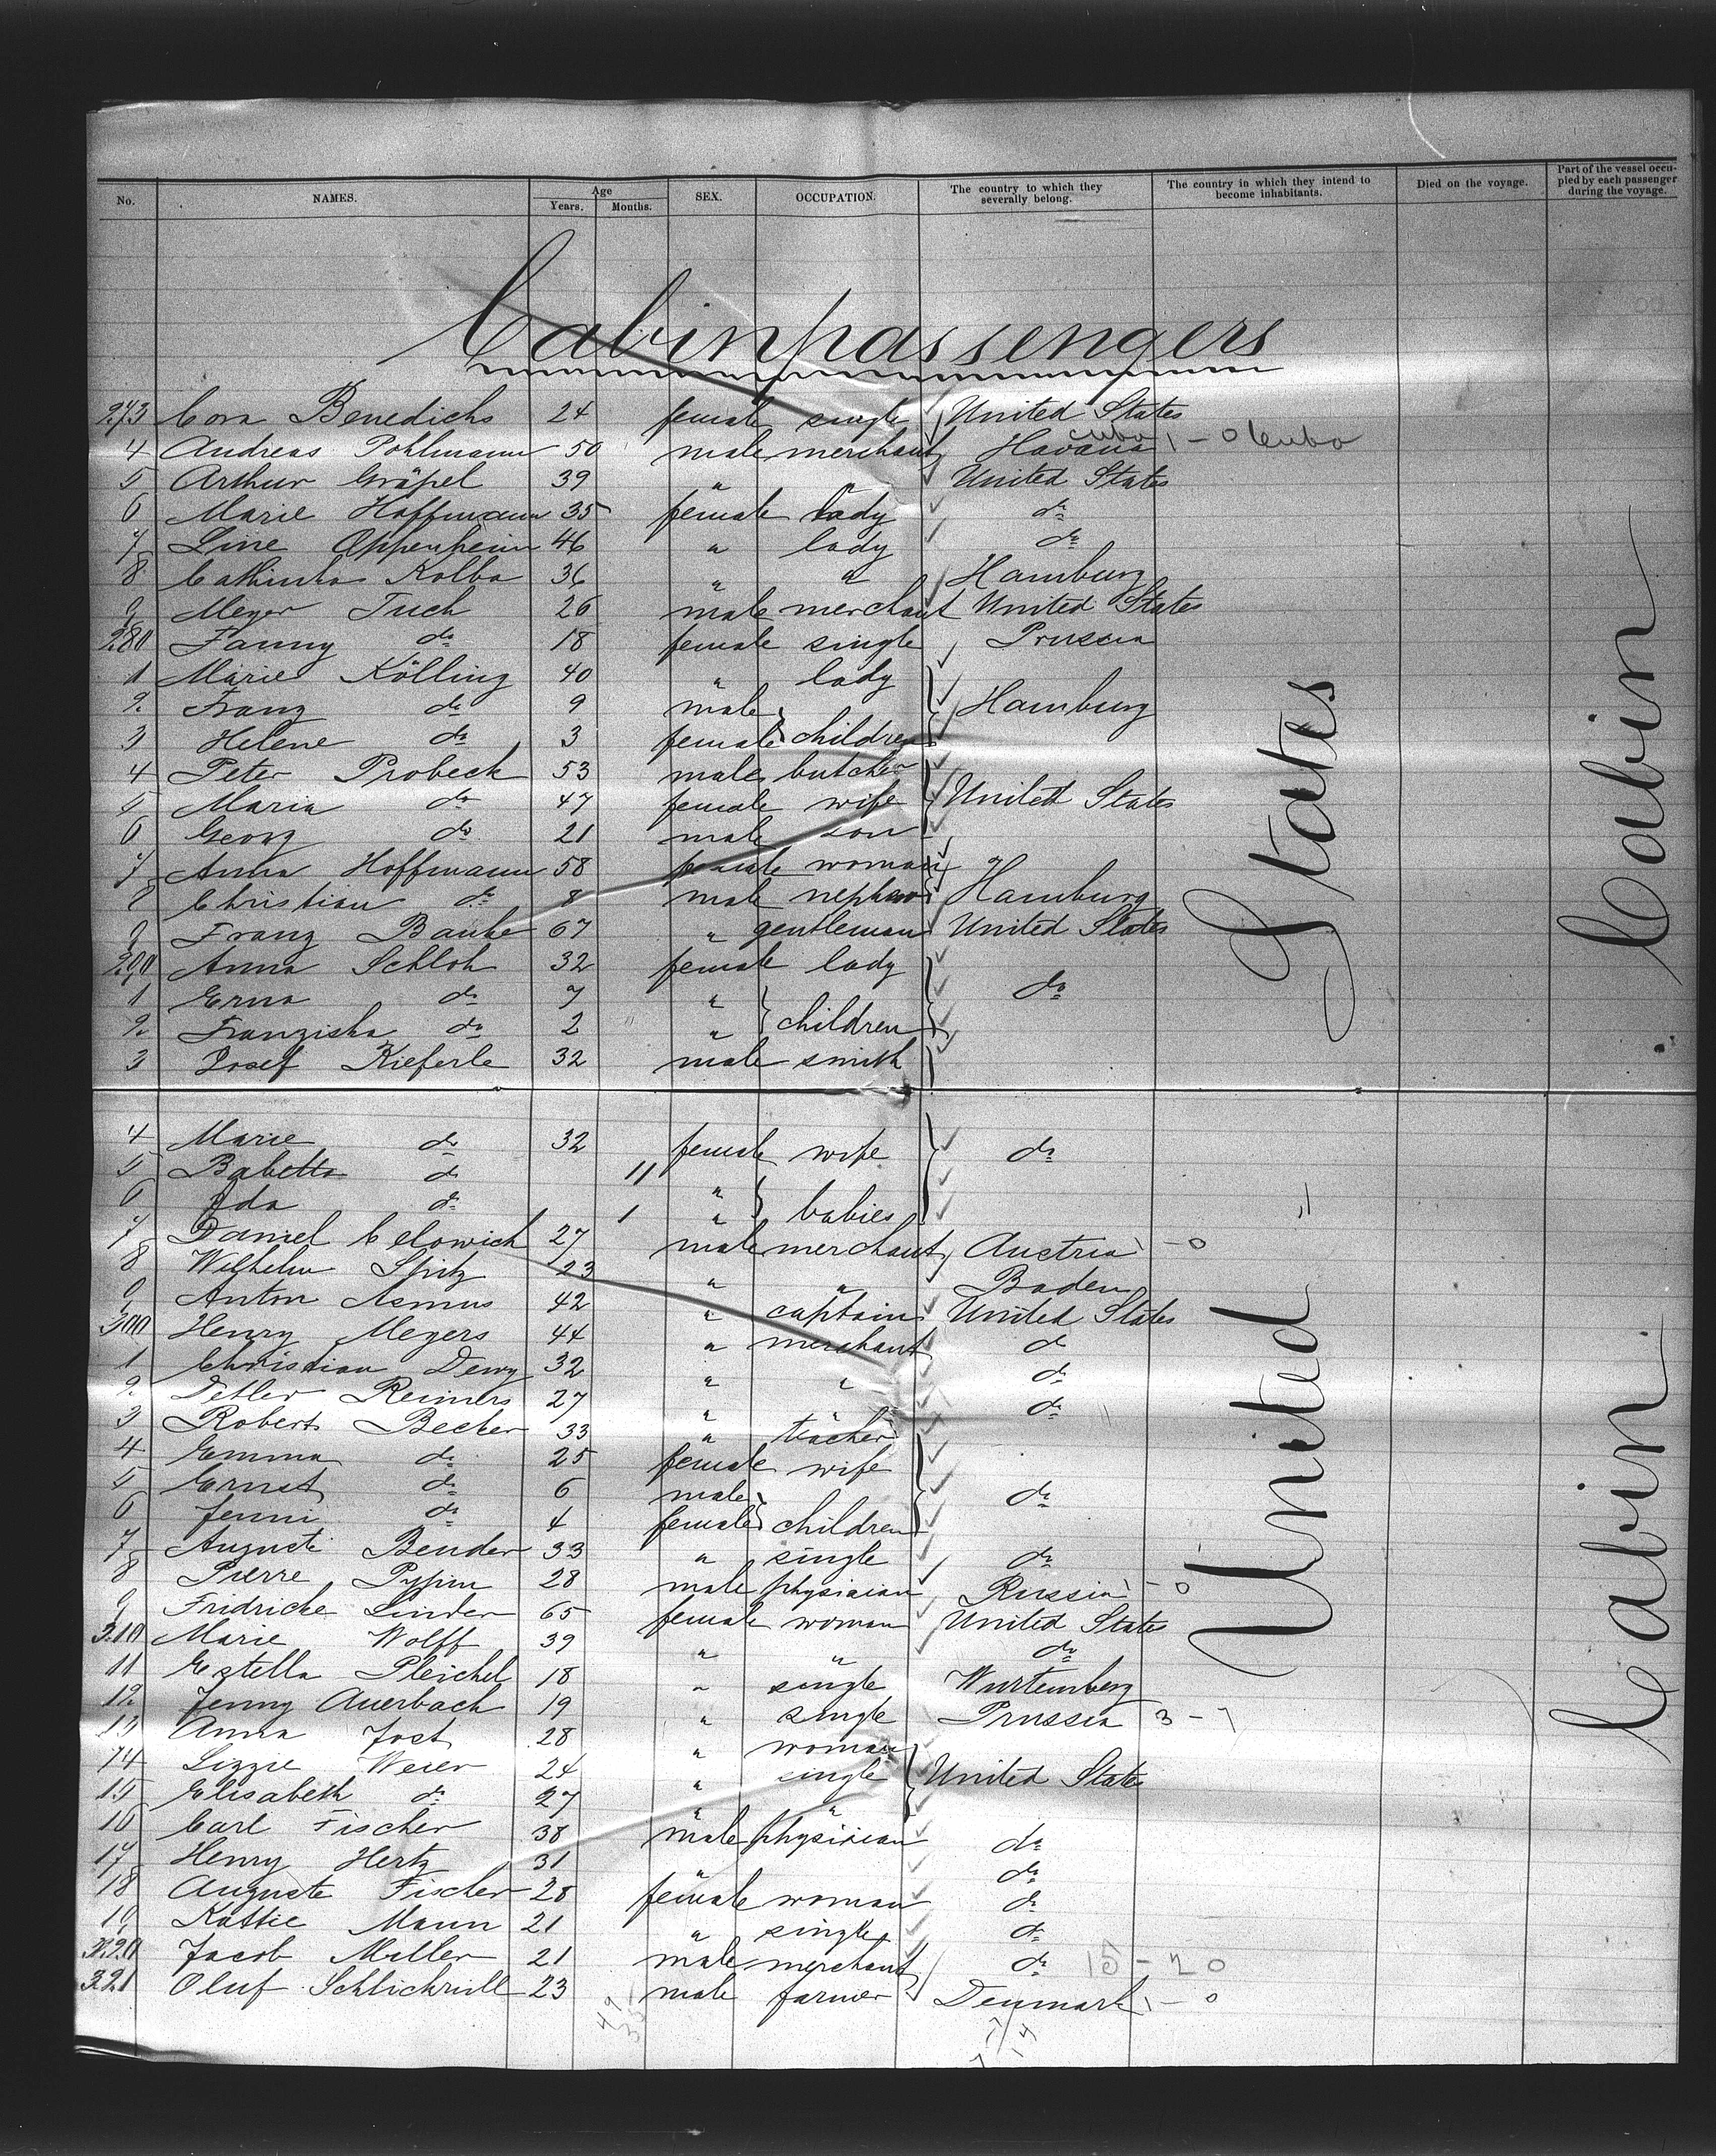 No. NAMES. Age Years. Months. SEX. OCCUPATION. The country to which they severally belong. The country in which they intend to become inhabitants. Died on the voyage. Part of the vessel occupied by each passenger during the voyage.
Cabinpassengers
273 Cora Benedichs 24 female single United States
4 Andreas Pohlmann 50 male merchant Havana Cuba 1 - 0 Cuba
5 Arthur Gräpel 39 " " United States
6 Marie Hoffmann 35 female lady do
7 Line Oppenheim 46 " lady do
8 Cathinka Kolba 36 " " Hamburg
9 Meyer Tuch 26 male merchant United States
280 Fanny do 18 female single Prussia
1 Marie Kölling 40 " lady
2 Franz do 9 male Hamburg
3 Helene do 3 female children
4 Peter Probeck 53 male butcher
5 Maria do 47 female wife United States
6 Georg do 21 male son
7 Anna Hoffmann 58 female woman
8 Christian do 8 male nephew Hamburg
9 Franz Banke 67 " gentleman United States
290 Anna Schloh 32 female lady
1 Erna do 7 " do
2 Franziska do 2 " children
3 Josef Kieferle 32 male smith
4 Marie do 32 female wife do
5 Babetta do 11 "
6 Ida do 1 " babies
7 Daniel Celowich 27 male merchant Austria - 0
8 Wilhelm Spitz 23 " " Baden
9 Anton Asmus 42 " captain United States
300 Henry Meyers 44 " merchant do
1 Christian Dewy 32 " " do
2 Detler Reimers 27 " " do
3 Robert Becker 33 " teacher
4 Emma do 25 female wife
5 Ernst do 6 male do
6 Jenni do 4 female children
7 Auguste Bender 33 " single do
8 Pierre 28 male physician Russia - 0
9 Fridricke Linder 65 female woman United States
310 Marie Wolff 39 " " do
11 Estella Pleichel 18 " single Wurtemberg
12 Jenny Auerbach 19 " single Prussia 3 - 7
13 Anna Jost 28 " woman
14 Lizzie Weier 24 " single United States
15 Elisabeth do 27 " "
16 Carl Fischer 38 male physician do
17 Henry Hertz 31 " do
18 Auguste Fischer 28 female woman do
19 Kattie Mann 21 " single do
320 Jacob Miller 21 male merchant do 15 - 20
321 Oluf Schlichrill 23 male farmer Denmark 1 - 0
United States
Cabin
Cabin